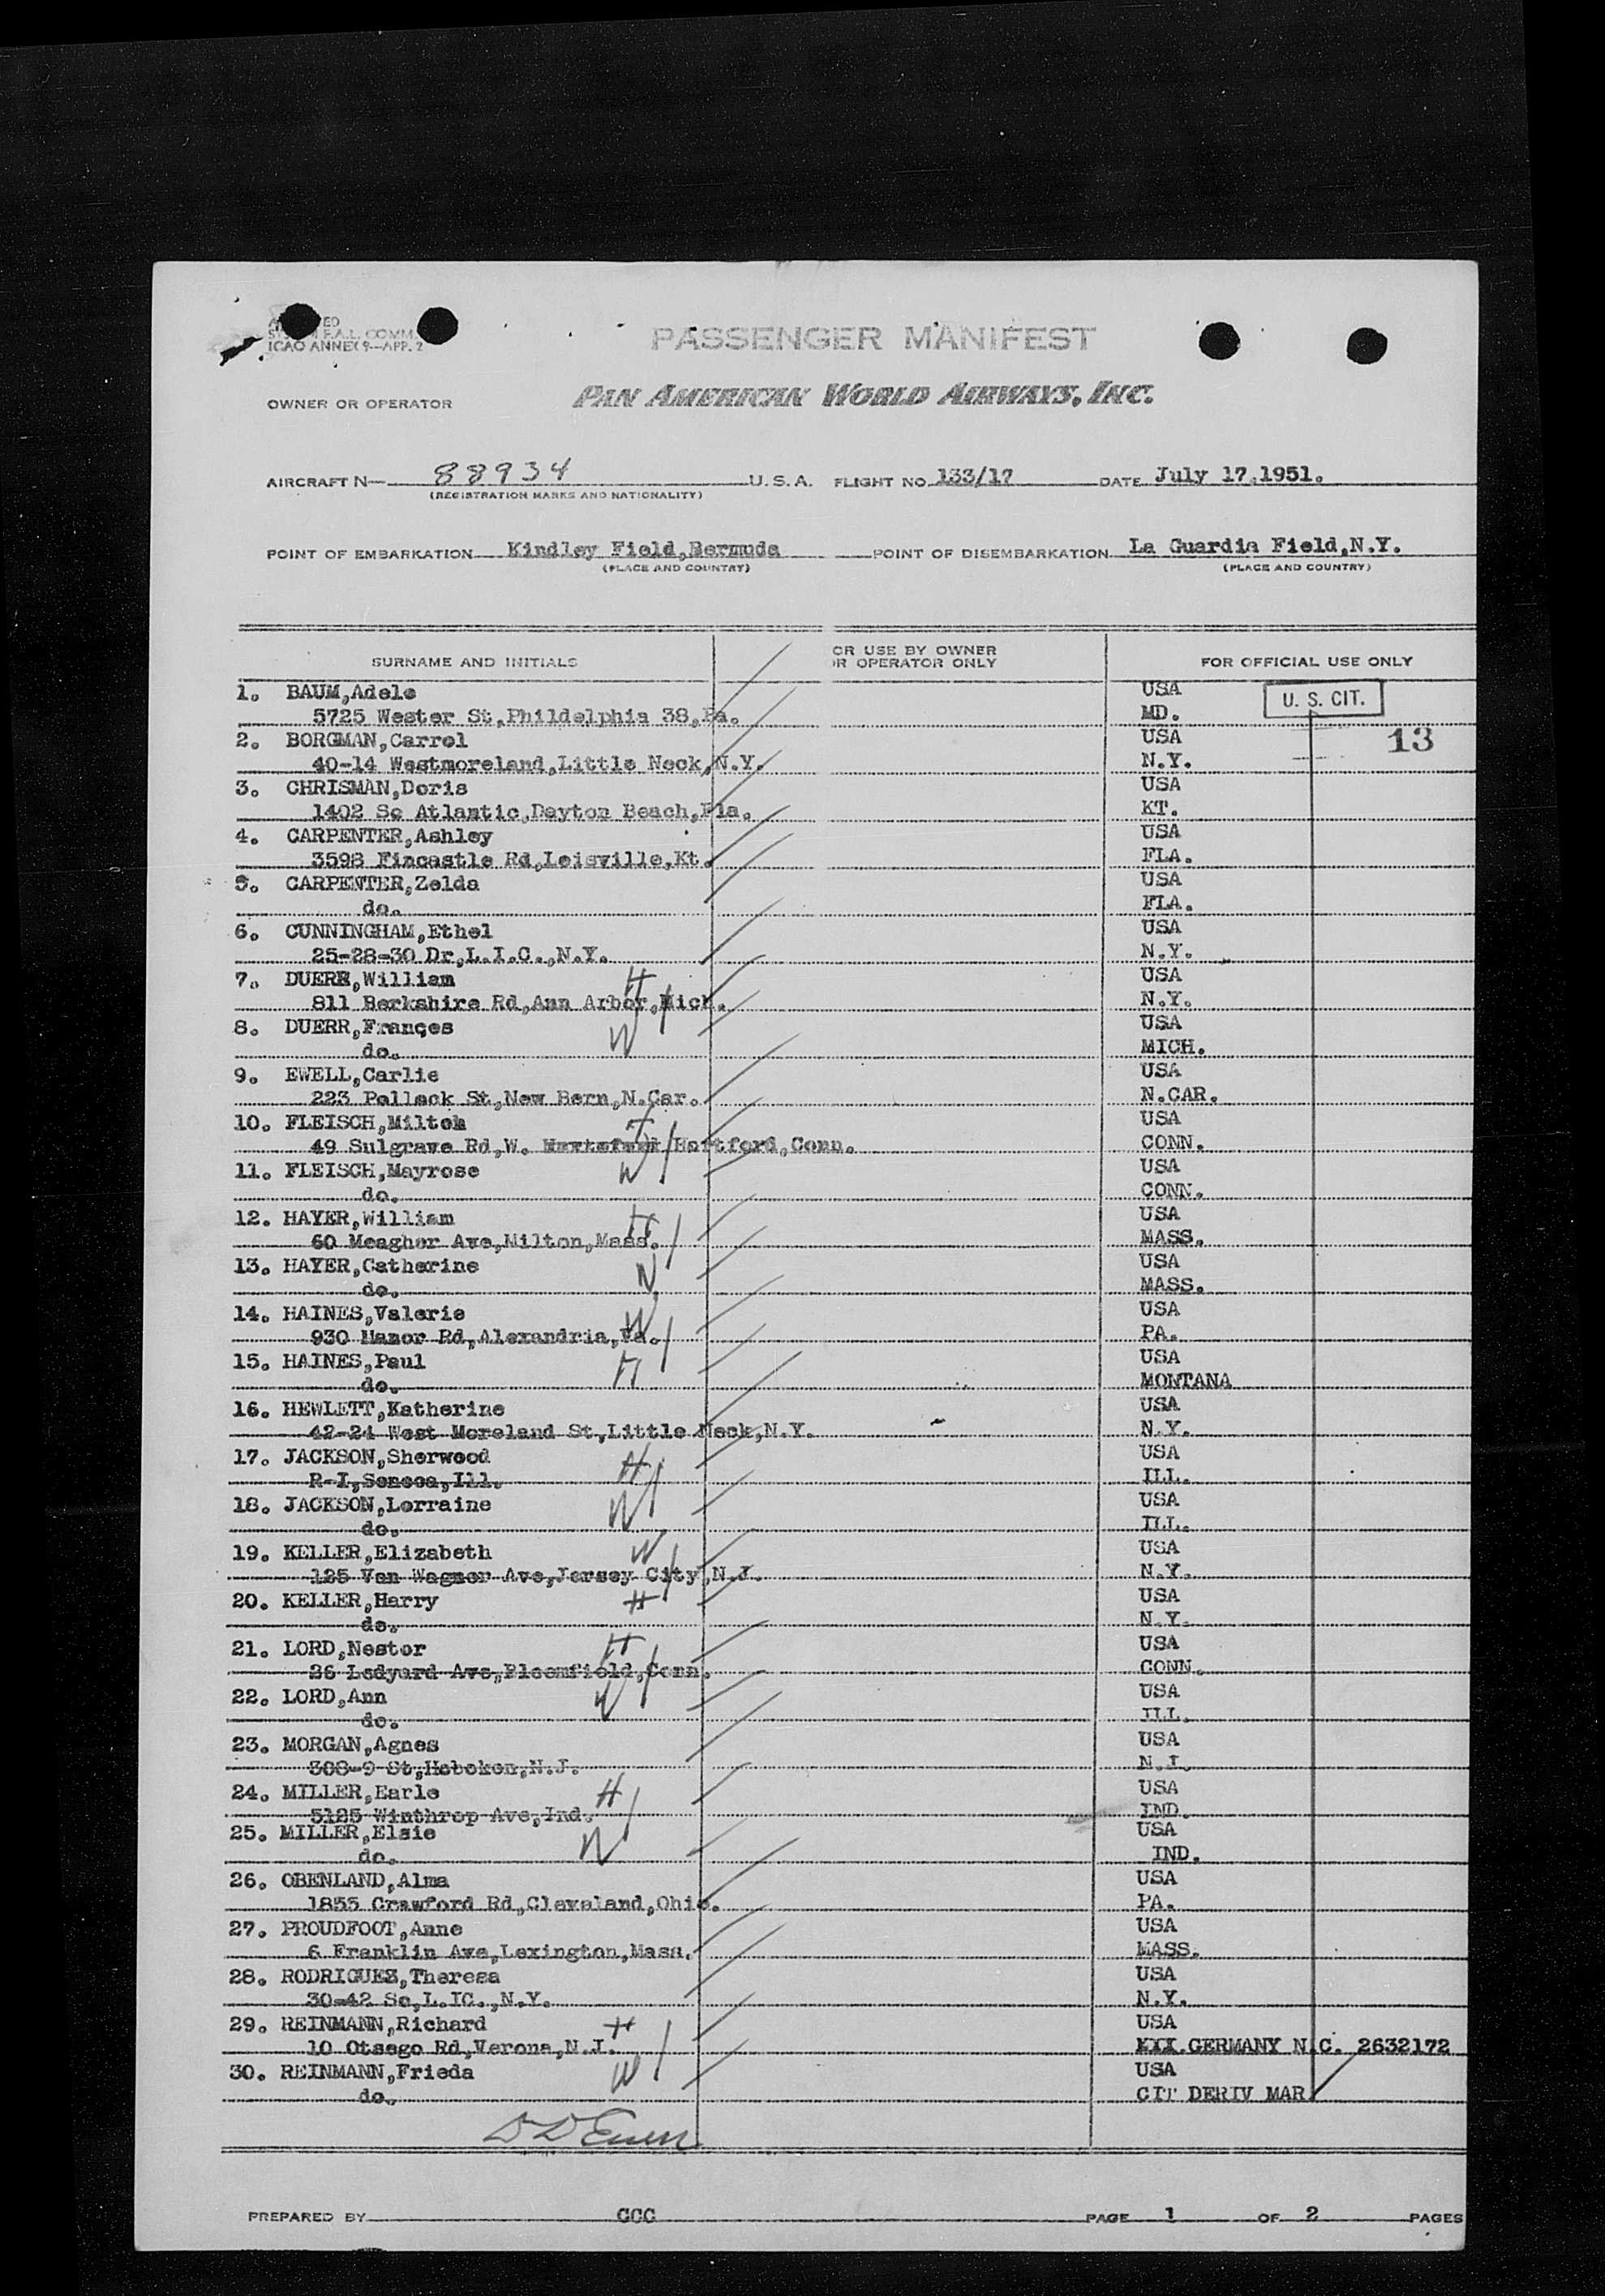 ICAO ANNEX 9—APP. 2
PASSENGER MANIFEST
OWNER OR OPERATOR PAN AMERICAN WORLD AIRWAYS, INC.
AIRCRAFT N— 88934 U. S. A. FLIGHT NO. 133/17 DATE July 17,1951.
(REGISTRATION MARKS AND NATIONALITY)
POINT OF EMBARKATION Kindley Field,Bermuda POINT OF DISEMBARKATION La Guardia Field,N.Y.
(PLACE AND COUNTRY) (PLACE AND COUNTRY)
SURNAME AND INITIALS OR USE BY OWNER OR OPERATOR ONLY FOR OFFICIAL USE ONLY
1. BAUM,Adele USA U. S. CIT.
5725 Wester St,Phildelphia 38,Pa. MD.
2. BORGMAN,Carrol USA 13
40-14 Westmoreland,Little Neck,N.Y. N.Y.
3. CHRISMAN,Doris USA
1402 So Atlantic,Dayton Beach,Fla. KT.
4. CARPENTER,Ashley USA
3598 Fincastle Rd,Loisville,Kt. FLA.
5. CARPENTER,Zelda USA
do. FLA.
6. CUNNINGHAM,Ethel USA
25-28-30 Dr,L.I.C.,N.Y. N.Y.
7. DUERR,William H USA
811 Berkshire Rd,Ann Arbor,Mich. N.Y.
8. DUERR,Frances W USA
do. MICH.
9. EWELL,Carlie USA
223 Pollack St,New Bern,N.Car. N.CAR.
10. FLEISCH,Milton H USA
49 Sulgrave Rd,W. Hartford,Conn. CONN.
11. FLEISCH,Mayrose W USA
do. CONN.
12. HAYER,William H USA
60 Meagher Ave,Milton,Mass. MASS.
13. HAYER,Catherine W USA
do. MASS.
14. HAINES,Valerie W USA
930 Manor Rd,Alexandria,Va. PA.
15. HAINES,Paul H USA
do. MONTANA
16. HEWLETT,Katherine USA
42-24 West Moreland St,Little Neck,N.Y. N.Y.
17. JACKSON,Sherwood H USA
R-I,Seneca,Ill. ILL.
18. JACKSON,Lorraine W USA
do. ILL.
19. KELLER,Elizabeth W USA
125 Van Wagner Ave,Jersey City,N.J. N.Y.
20. KELLER,Harry H USA
do. N.Y.
21. LORD,Nestor H USA
26 Ledyard Ave,Bloomfield,Conn. CONN.
22. LORD,Ann W USA
do. ILL.
23. MORGAN,Agnes USA
308-9 St,Hoboken,N.J. N.J.
24. MILLER,Earle H USA
5125 Winthrop Ave,Ind. IND.
25. MILLER,Elsie W USA
do. IND.
26. OBENLAND,Alma USA
1855 Crawford Rd,Clevaland,Ohio. PA.
27. PROUDFOOT,Anne USA
6 Franklin Ave,Lexington,Mass. MASS.
28. RODRIGUEZ,Theresa USA
30-42 Sc,L.IC.,N.Y. N.Y.
29. REINMANN,Richard H USA
10 Otsego Rd,Verona,N.J. GERMANY N.C. 2632172
30. REINMANN,Frieda W USA
do. CIT DERIV MAR
PREPARED BY CCC PAGE 1 OF 2 PAGES